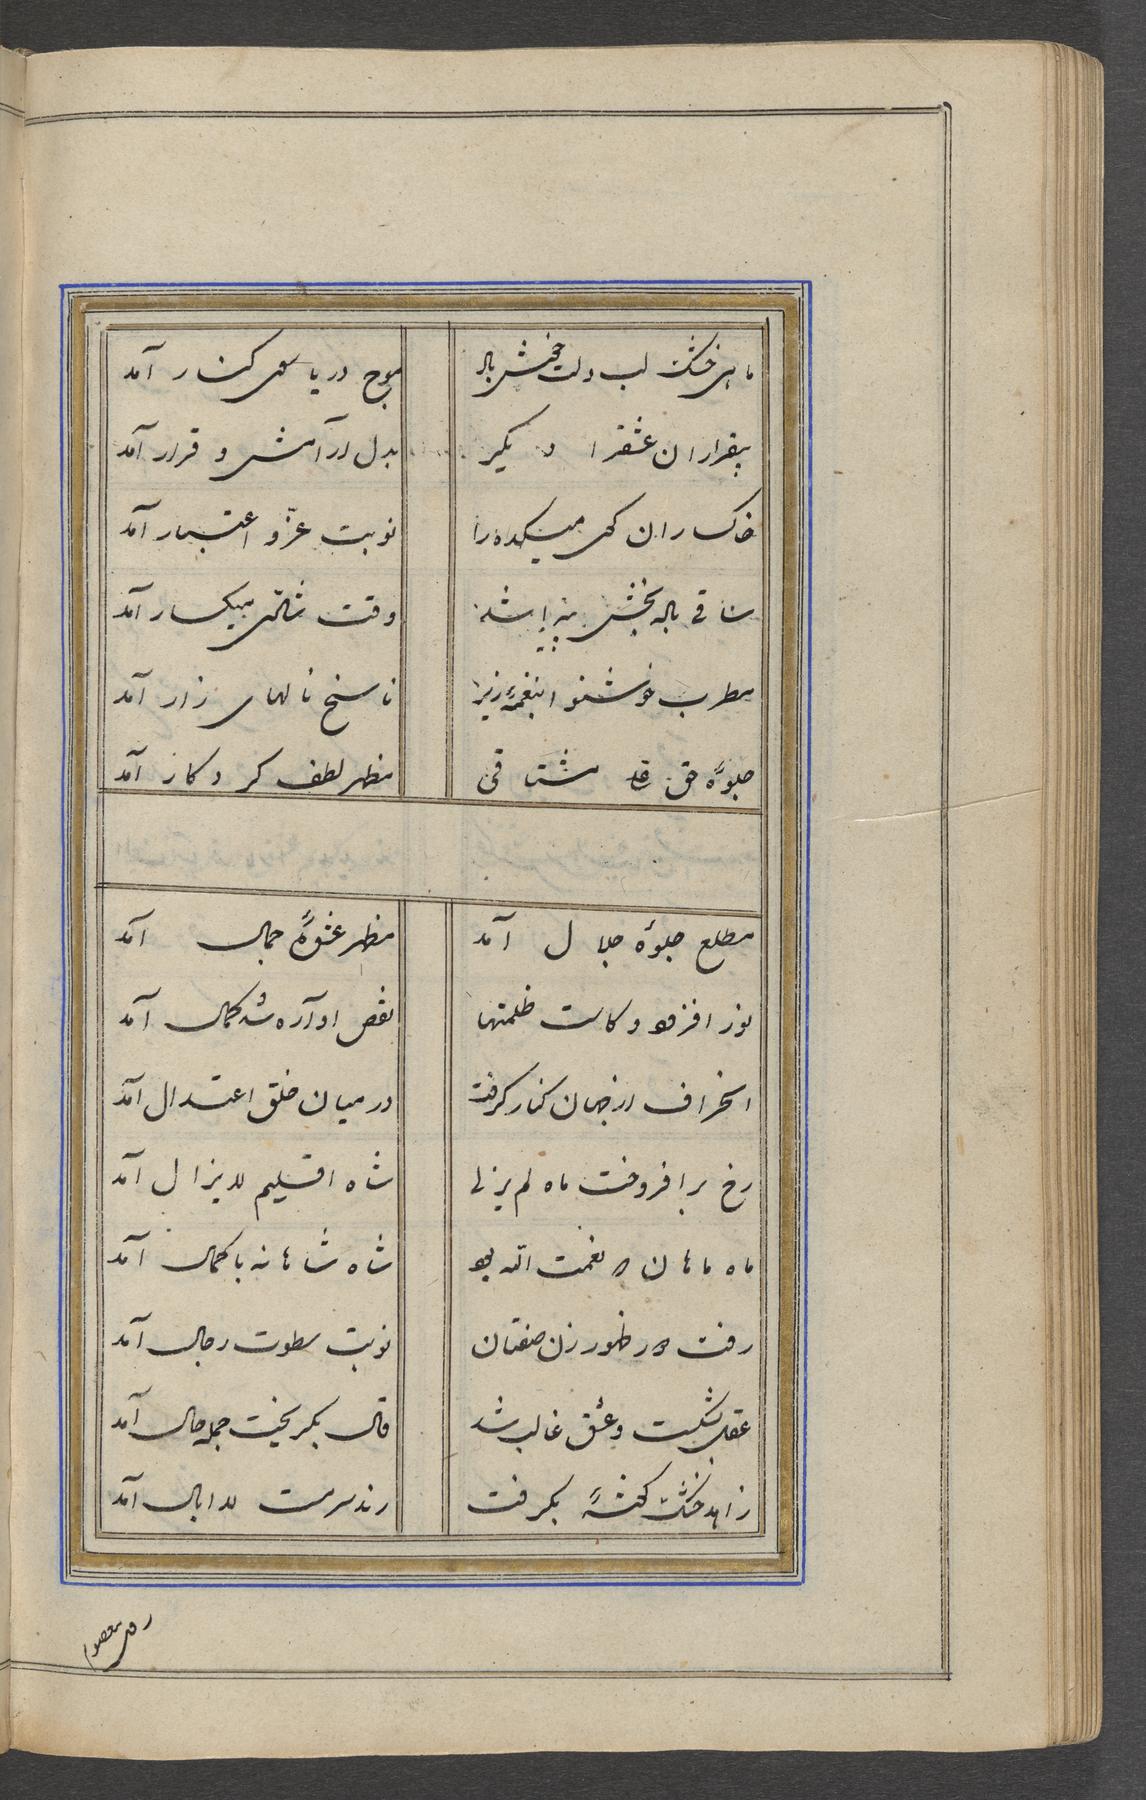 ماهی خشک لب دلت خوش باد موج دریا سوی کنار آمد
بیقراران عشق را دیگر بدل آرامش و قرار آمد
خاکساران کوی میکده را نوبت عزّ و اعتبار آمد
ساقی باده بخش وقت ثانی میگسار آمد
مطرب خوشنوا بنغمه زیر ناسخ نالهای زار آمد
جلوهٔ حق مشتاقی مظهر لطف کردکار آمد
مطلع جلوهٔ جلال آمد مظهر عشوهٔ جمال آمد
نور افزود و کاست ظلمتها نقص آواره شد کمال آمد
انحراف از جهان کنار گرفت در میان خلق اعتدال آمد
رخ برافروخت ماه لم یزلی شاه اقلیم لایزال آمد
ماه ماهان نعمت الله بود شاه شاهانه با کمال آمد
رفت دور ظهور زن صفتان نوبت سطوت رجال آمد
عقل بشکست و عشق غالب شد قال بگریخت جمله حال آمد
زاهد خشک گوشهٔ بگرفت رند سرمست لاابال آمد
روی معصوم